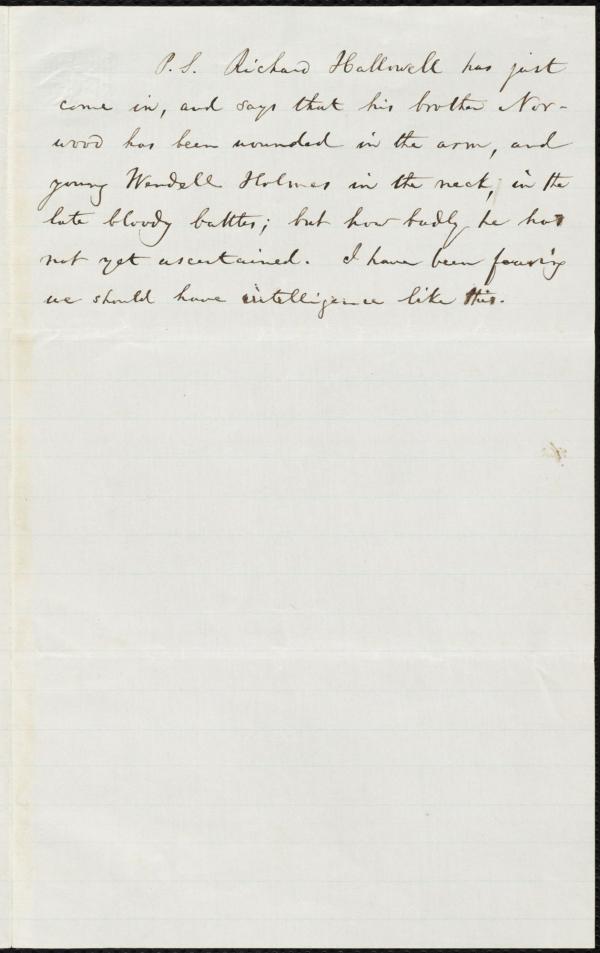 P.S. Richard Hallowell has just
come in, and says that his brother Nor-
wood has been wounded in the arm, and
young Wendell Holmes in the neck, in the
late bloody battles; but how badly he has
not yet ascertained. I have been fearing
we should have intelligence like this.